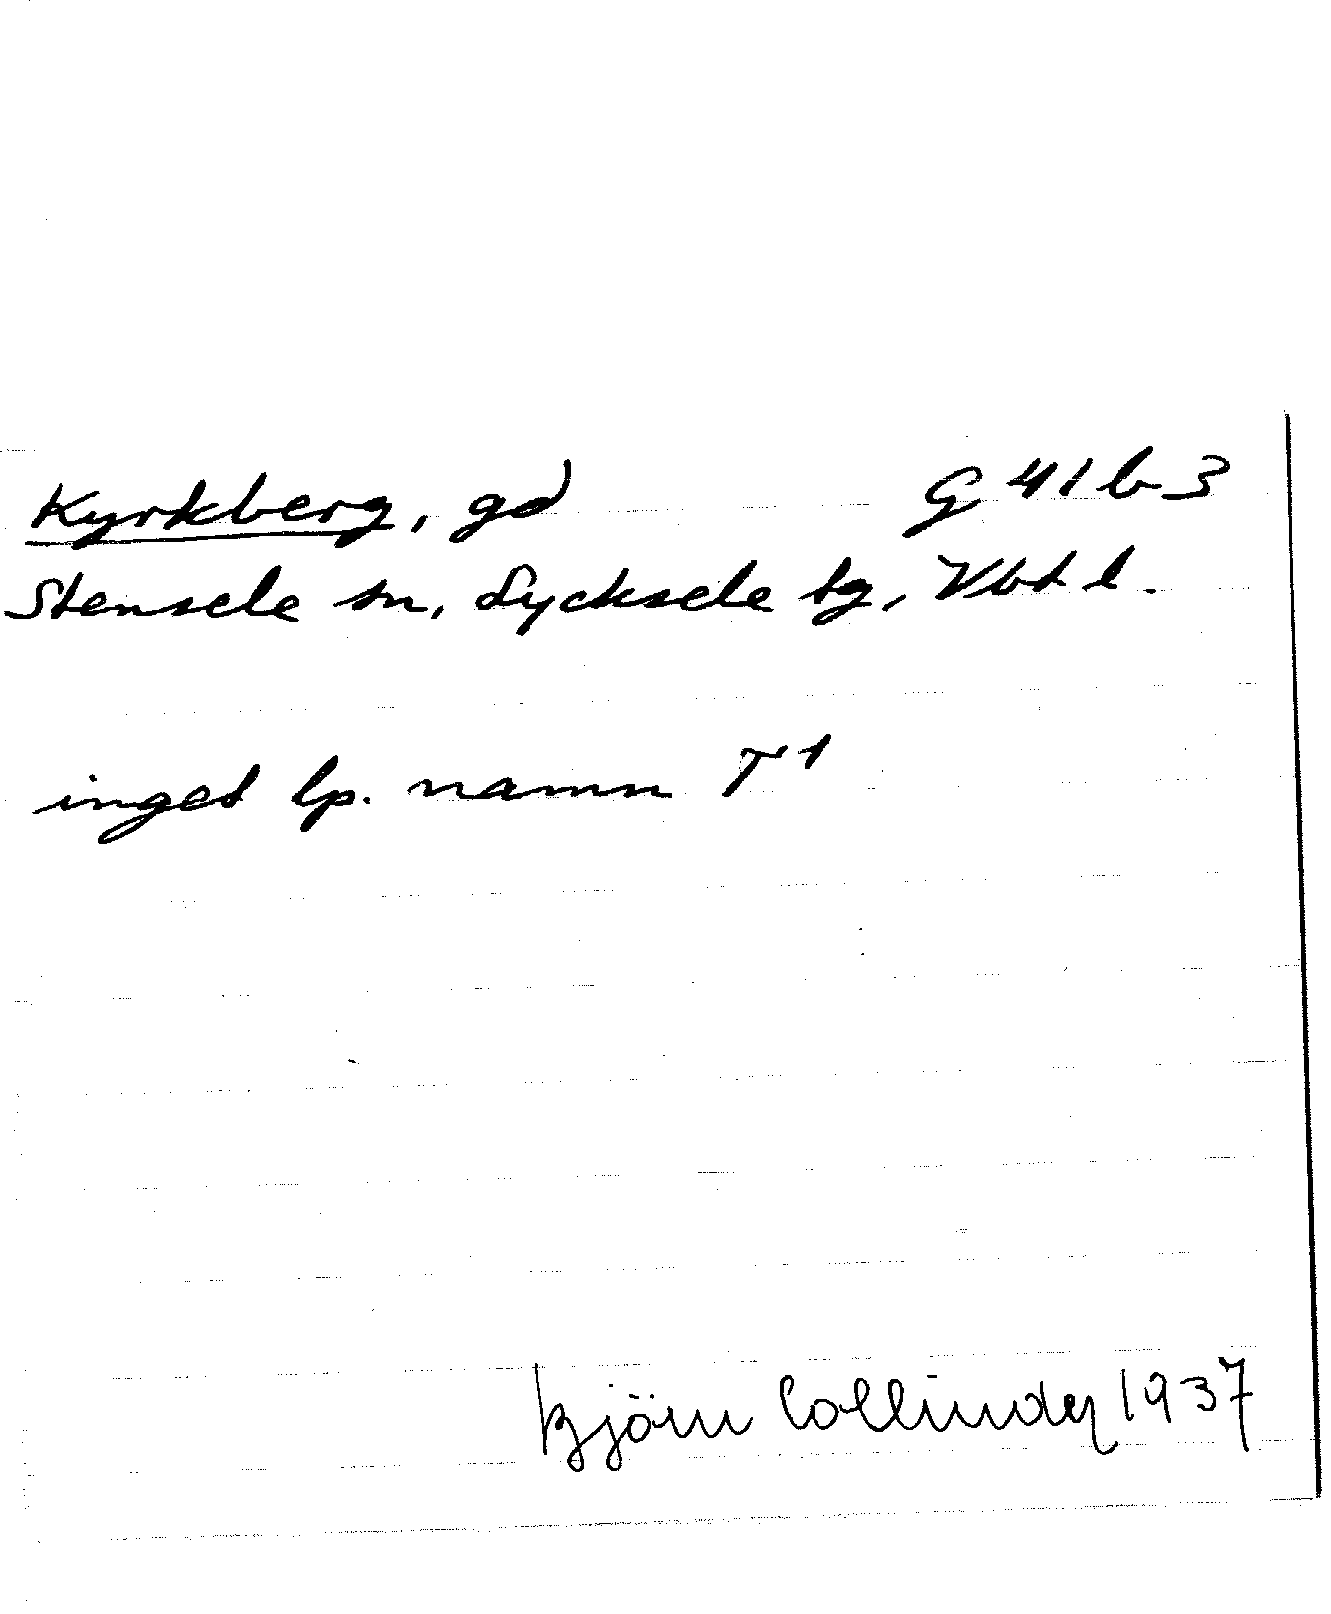 Kyrkberg, gd G 41 b 3
Stensele sn, Lycksele tg, Vbt l.
inget lp. namn T 1
Björn Collinder 1937